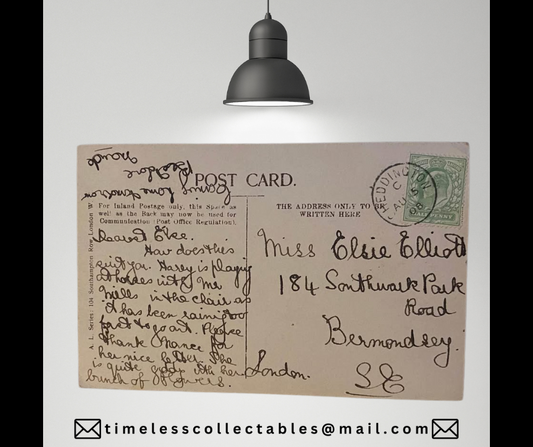 POST CARD.
For Inland Postage only, this Space as
well as the Back may now be used for
Communication (Post Office Regulation).
THE ADDRESS ONLY TO BE
WRITTEN HERE
A. L. Series: 124 Southampton Row London W
HEDDINGTON
C
AU 5
08
Dearest Elsie.
How does this
suit you. Harry is playing
at horses with Mr
Mills in the chair as
it has been raining too
fast to go out. Please
thank Nance for
her nice letter She
is quite gody with her
bunch of flowers.
Miss Elsie Elliott
184 Southwark Park
Road
Bermondsey.
London.
S.E
timelesscollectables@mail.com